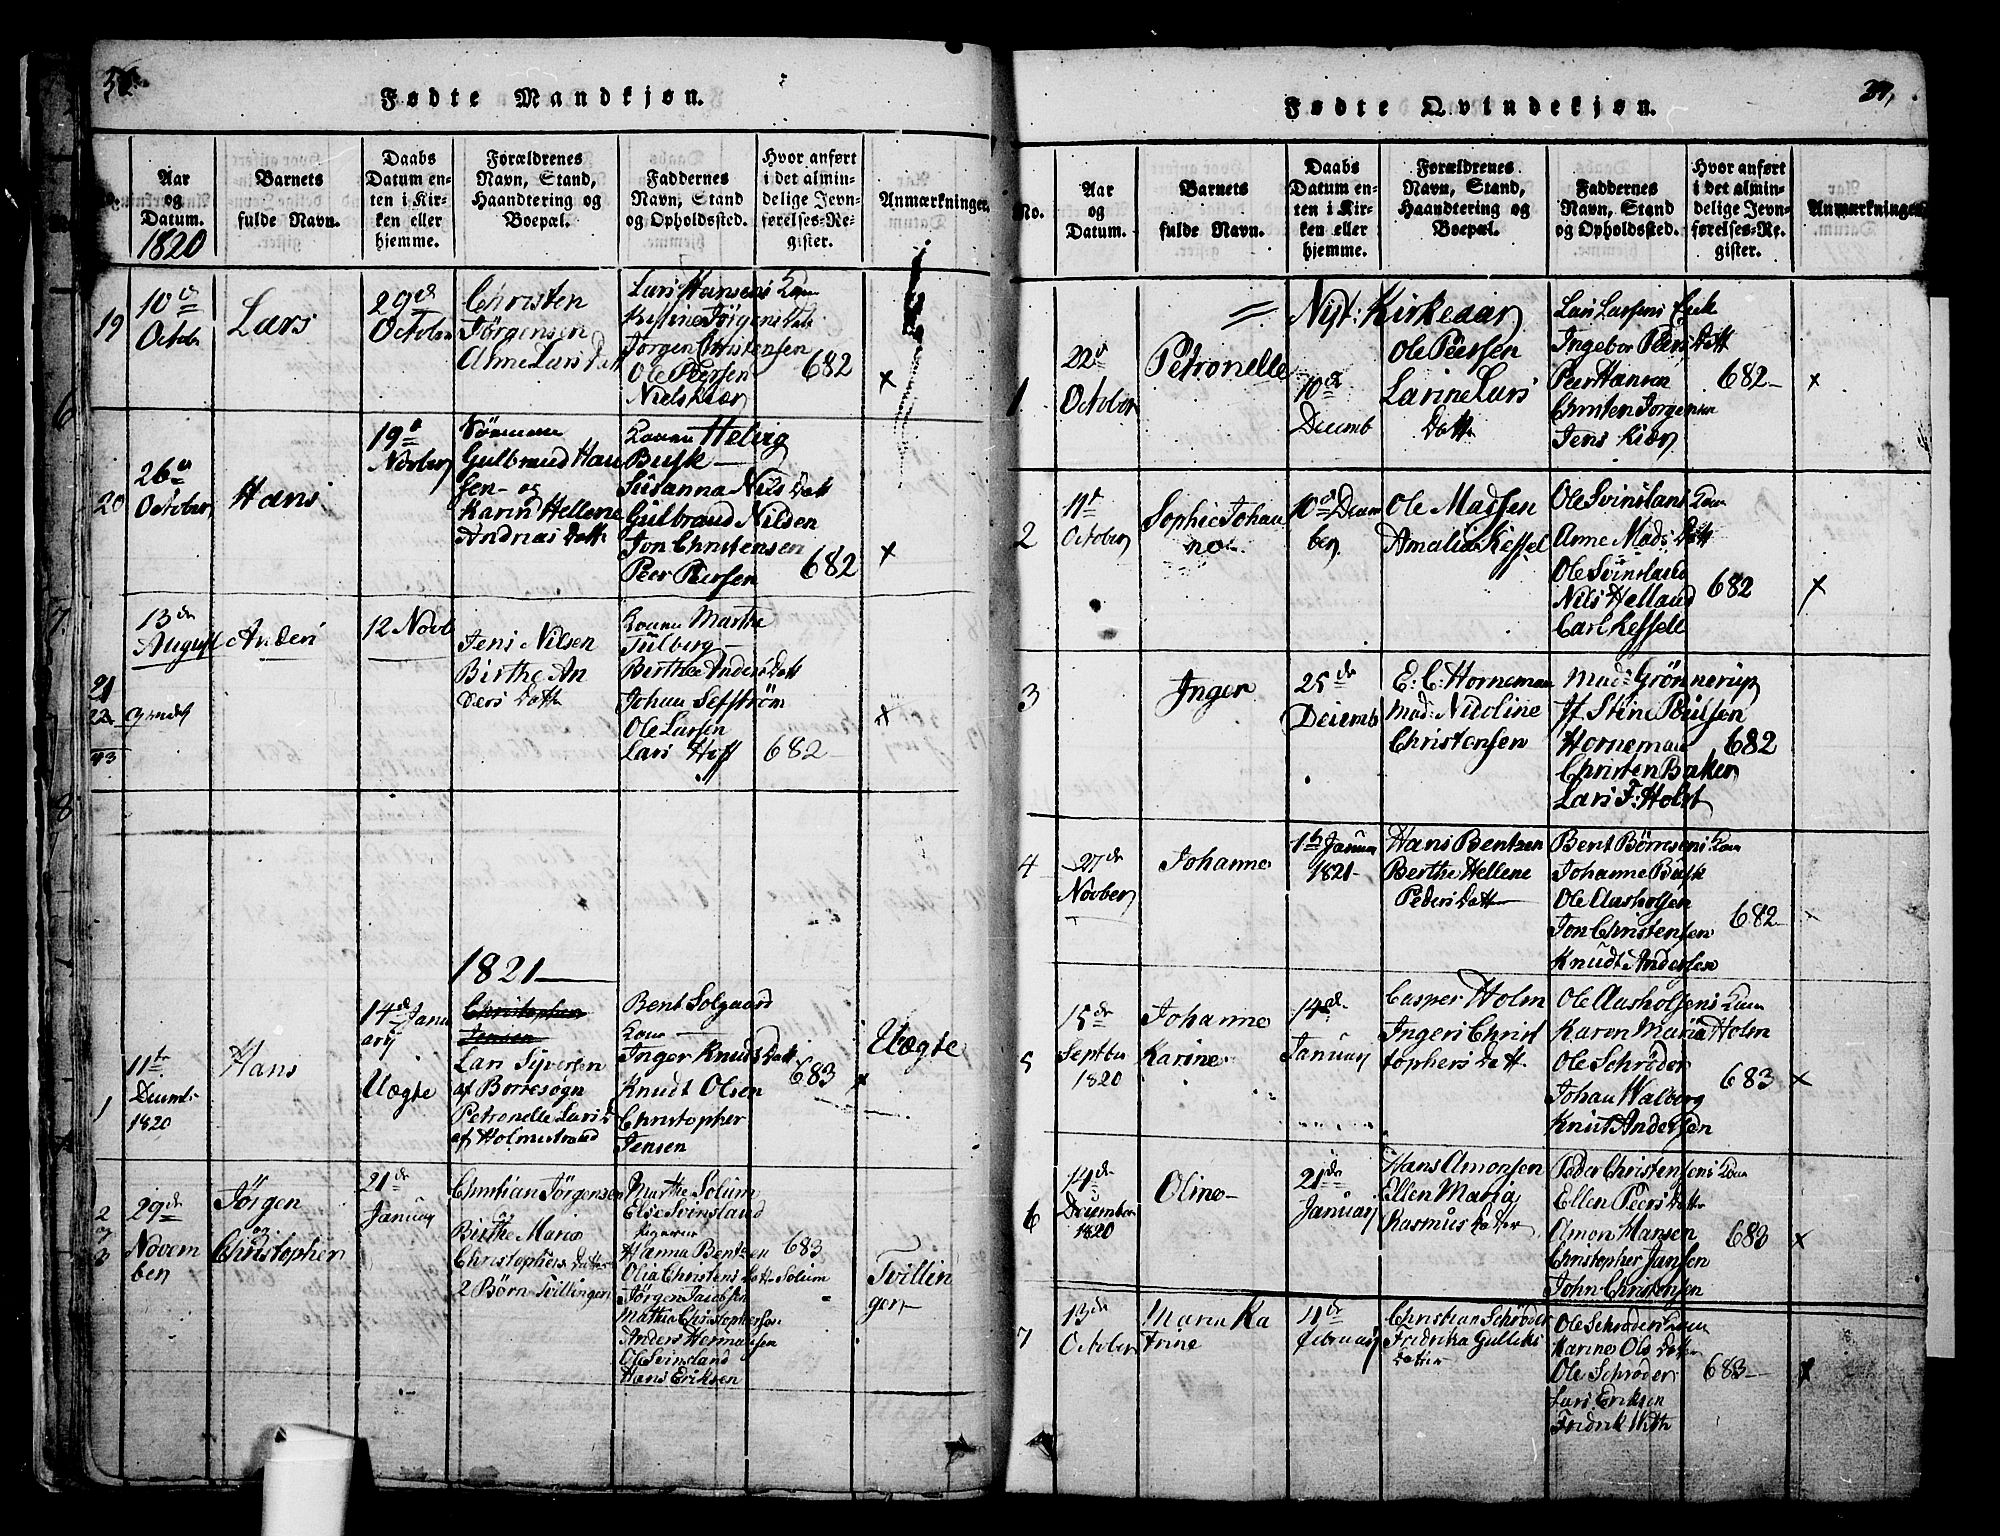 Fødte Mandkjøn.
Aar og Datum.
1820
Barnets fulde Navn.
Daabs Datum enten i Kirken eller hjemme.
Forældrenes Navn, Stand, Haandtering og Boepæl.
Faddernes Navn, Stand og Opholdssted.
Hvor anført i det almindelige Jevnførelses-Register.
Anmærkninger.
19
10de
Octobr
Lars
29de
October
Christen
Jørgensen
Anne Lars Datt
Lars Hansens Kone
Jørgen Christensen
Ole Peersen
Niels Kiær
682
x
20
26de
October
Hans
19de
Novber
Gulbrand Han
sen og
Karen Hellene
Andreas Datt
Helvig
Busk
Susanna Nils Datt
Gulbrand Nilsen
Jon Christensen
Peer Peersen
682
x
21
13de
August
Anders
12 Novb
Jens Nilsen
Birthe An
ders Datt
Marthe
Tulberg
Birthe Anders Datt
Johan Sefström
Ole Larsen
Lars Hoff
682
x
1821
1
11te
Decemb
1820
Hans
14de Janu
ary
Uægte
Christopher
Jensen
Lars Syversen
af Borresogn
Petronelle Lars D
af Holmestrand
Bent Solgaard
Kone
Inger Knuds Datt
Knudt Olsen
Christopher
Jensen
683
x
Uægte
2
og
3
29de
Novem
ber
Jörgen
og
Christopher
21de
January
Christian Jörgensen
og
Birthe Maria
Christophers Datter
2 Börn Tvillinger
Marthe Solum
Else Svinsland
Hanna Bentzen
Olia Christens Datt Solum
Jørgen Jacobsen
Mathia Christophersen
Anders Hermansen
Ole Svinsland
Hans Eriksen
683
Tvillin
ger
Fødte Qvindekjøn.
39,
No.
Aar og Datum.
Barnets fulde Navn.
Daabs Datum enten i Kirken eller hjemme.
Forældrenes Navn, Stand, Haandtering og Boepæl.
Faddernes Navn, Stand og Opholdssted.
Hvor anført i det almindelige Jevnførelses-Register.
Anmærkninger.
Nyt: Kirkeaar
1
22de
October
Petronelle
10de
Decemb
Ole Peersen
Larine Lars
Datt
Ingebor Peers Datt
Peer Hansen
Christen Jørgensen
Jens Kiær
682
x
2
11te
October
Sophie Johan
ne
10de Decem
ber
Ole Madsen
Amalia Kessel
Ole Svinslans Kone
Anne Mads Datt
Ole Svinsland
Nils Helland
Carl Kessell
682
x
3
Inger
25de
Decemb
E: C: Horneman
Mad: Nicoline
Christensen
Mad: Grönnerup
Jf Stine Poulsen
Horneman
Christen Baker
Lars F: Holst
682
4
27de
Novber
Johanne
1te Januar
1821
Hans Bentzen
Berthe Hellene
Peders Datter
Bent Börresens Kone
Johanne Busk
Ole Aasholsen
Jon Christensen
Knudt Andersen
682
x
5
15de
Septbr
1820
Johanne
Karine
14de
January
Casper Holm
Ingers Christ
tophers Datt
Ole Aasholsens Kone
Karen Maria Holm
Ole Schröder
Johan Walberg
Knut Andersen
683
x
6
14de
December
1820
Oline
21de
January
Hans Amonsen
Ellen Maria
Rasmus Datter
Peder Christensens Kone
Ellen Peers Datter
Amon Hansen
Christopher Jansen
John Christensen
683
x
7
13de
October
Maria Ka
trine
4de
February
Christian Schröder
Fredrika Gulliks
Datter
Ole Schröders Kone
Karine Ols Datter
Ole Schröder
Lars Eriksen
Fredrik With
683
x